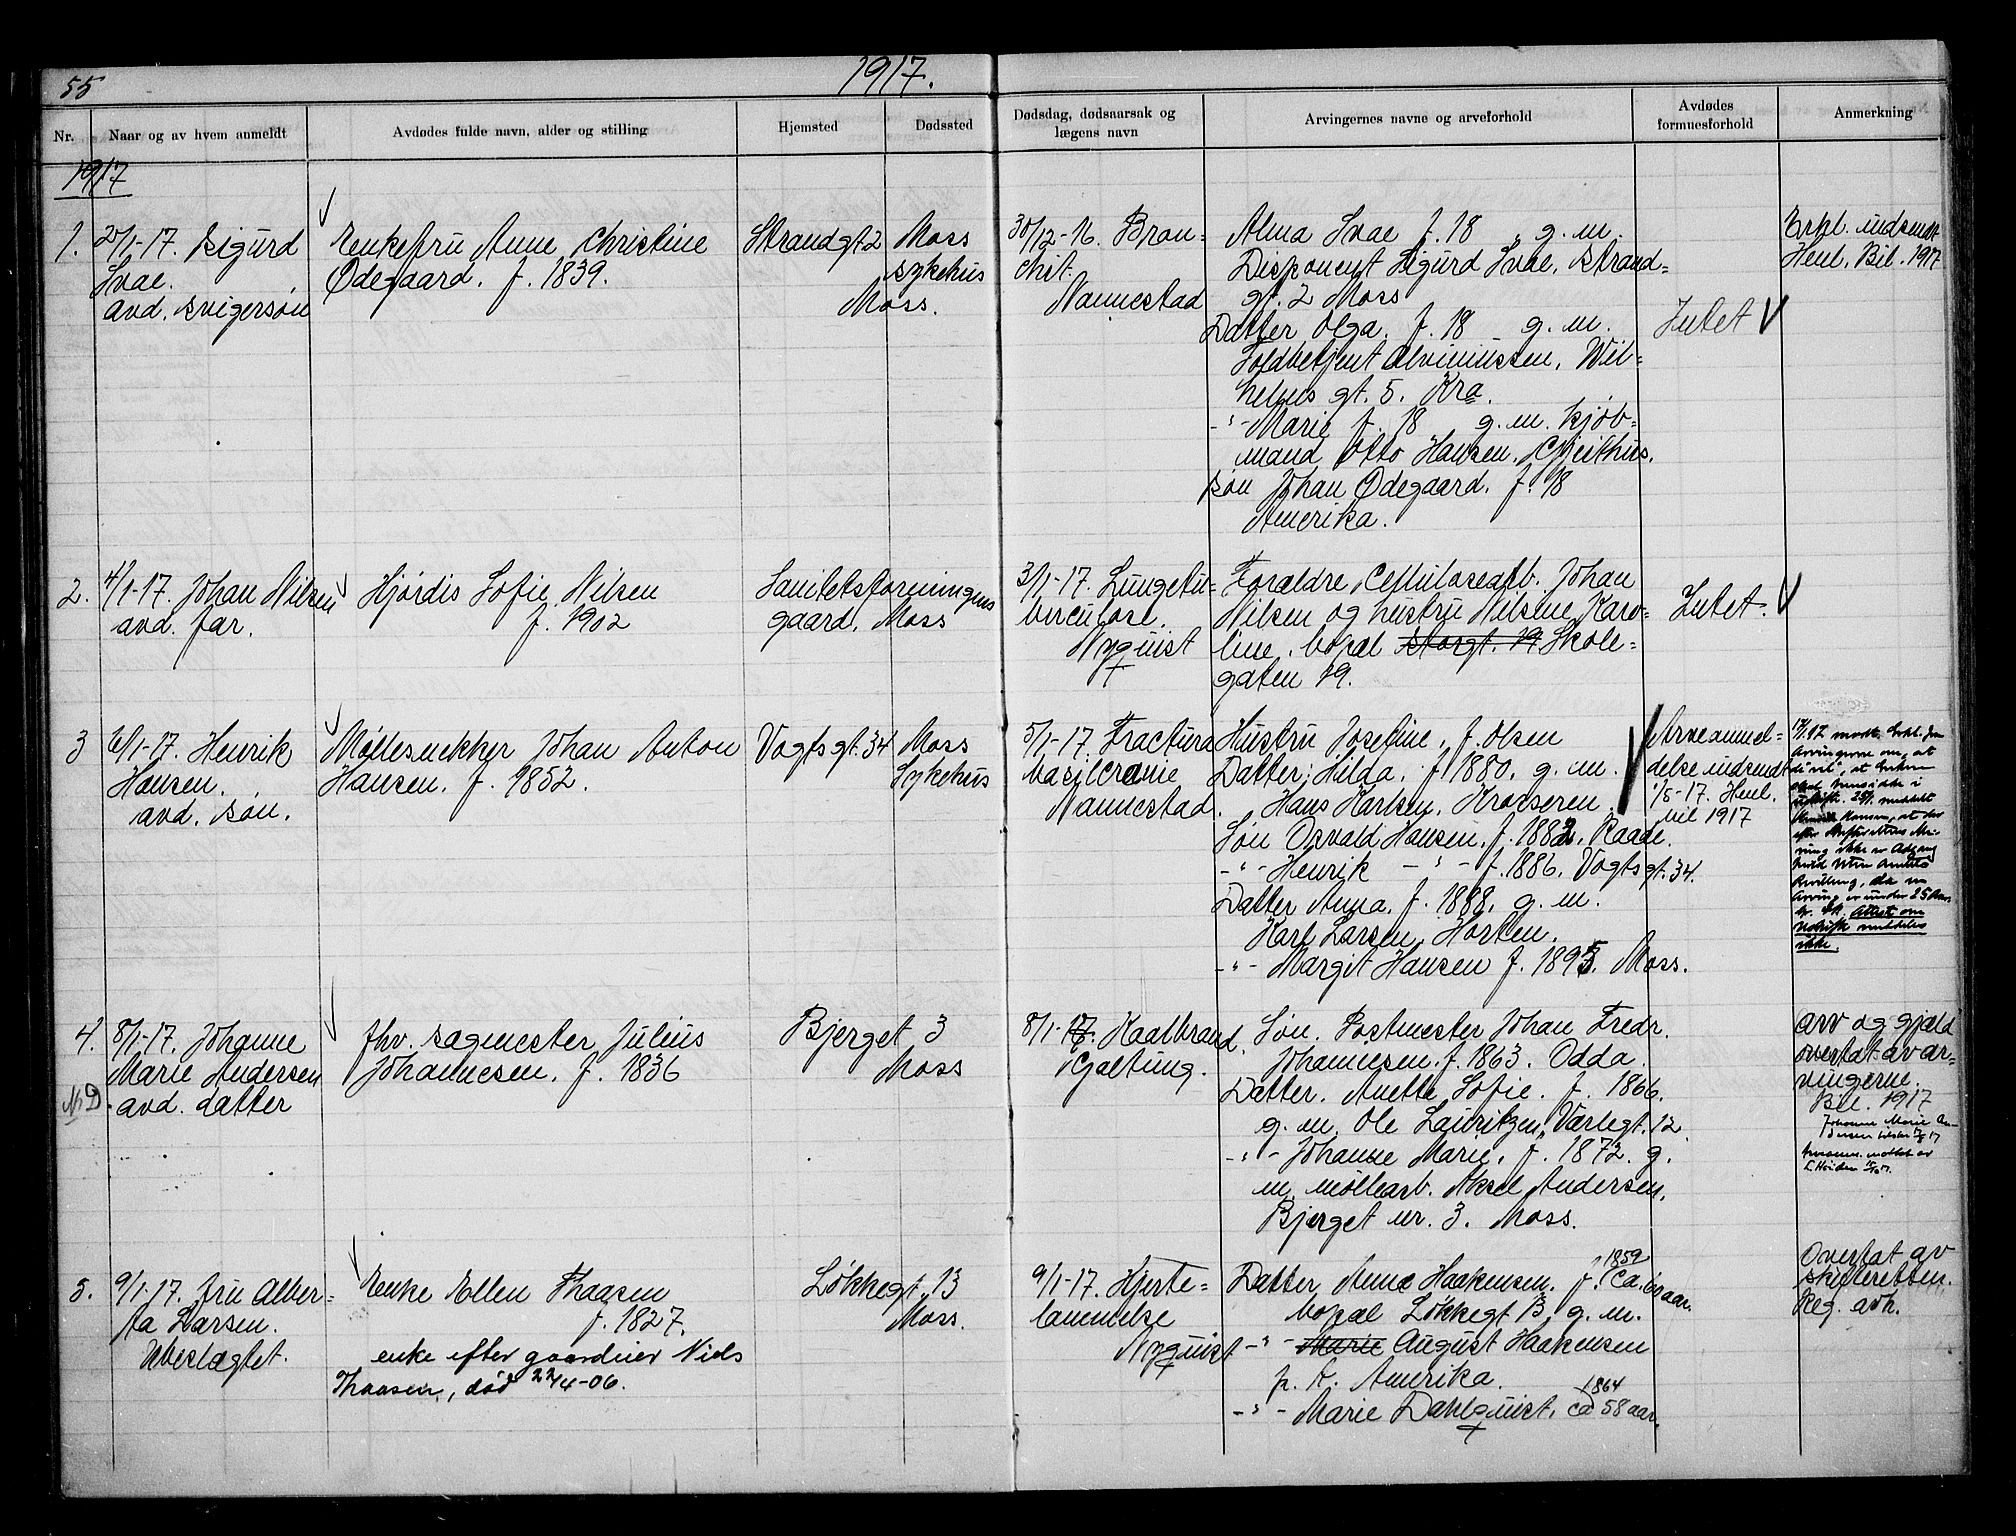 55
1917.
Nr.
Naar og av hvem anmeldt
Avdødes fulde navn, alder og stilling
Hjemsted
Dødssted
Dødsdag, dødsaarsak og
lægens navn
Arvingernes navne og arveforhold
Avdødes
formuesforhold
Anmerkning
1917
1.
2/1-17. Sigurd
Svae.
avd. svigersøn
Enkefru Anne Christine
Ødegaard. f. 1839.
Strandgt 2
Moss
sykehus
Moss.
30/12-16. Bron-
chit.
Nannestad
Alma Svae f. 18 g. m.
Disponent Sigurd Svae, Strand=
gt. 2 Moss
Datter Olga. f. 18 g. m.
Toldbetjent Alvinussen, Wil=
helms gt. 5. Kra.
-"- Marie f. 18 g. m. kjøb=
mand Otto Hansen, Gjeithus.
søn Johan Ødegaard. f. 18
Amerika.
Intet
Erkl. indsendt
Henl. Bil. 1917
2.
4/1-17. Johan Nilsen
avd. far.
Hjørdis Sofie Nilsen
f. 1902
Sanitetsforeningens
gaard, Moss
3/1-17. Lungetu-
berculose.
Nyquist
Forældre, Cellulosearb. Johan
Nilsen og hustru Nilsine Karo=
line, bopæl Storgt. 19 Skole=
gaten 19.
Intet.
3
6/1-17. Henrik
Hansen.
avd. søn.
Møllesnekker Johan Anton
Hansen. f. 1852.
Vogtsgt. 34
Moss
Sykehus
5/1-17. Fractura
basilcranie
Nannestad.
Hustru Josefine, f. Olsen
Datter; Hilda. f 1880. g. m.
Hans Karlsen, Kroeseren
Søn Osvald Hansen, f. 1882, Raade.
-"- Henrik -"- f. 1886, Vogtsgt. 34.
Datter Anna. f. 1888. g. m.
Karl Larsen, Horten.
-"- Margit Hansen f. 1895. Moss.
Arveanmel-
delse indsendt
1/5-17. Henl.
bil 1917
Arvingerne om, at
Hansen, at der
ikke er Adgang
Arving er under 25 Aar,
Attest om
Uskifte meddeles
ikke.
4.
8/1-17. Johanne
Marie Andersen
avd. datter
N.D.
fhv. sagmester Julius
Johannesen. f. 1836
Bjerget 3
Moss
8/1-17. Kaalbrand.
Gjeltung.
Søn. Postmester Johan Fredr.
Johannesen. f. 1863. Odda.
Datter. Anette Sofie. f. 1866.
g. m. Ole Lauritzen, Varlegt. 12
-"- Johanne Marie. f. 1872. g.
m. møllearb. Aksel Andersen.
Bjerget nr. 3. Moss.
Arv og gjæld
overtat av ar-
vingerne.
Bil. 1917
Johanne Marie An-
dersen
mottat av
5.
9/1-17. fru Alber=
ta Larsen.
Ubeslægtet.
Enke Ellen Thaasen
f. 1827.
enke efter gaardeier Niels
Thaasen, død 22/4-06.
Løkkegt. 13
Moss.
9/1-17. Hjerte=
lammelse
Nyquist
Datter Anne Haakensen. f. 1859 Ca. aar.
bopæl Løkkegt 13, g. m.
-"- Marie August Haakensen
p. t. Amerika.
-"- Marie Dahlquist, 1864 ca 58 aar.
Overtat av
skifteretten.
Reg. avh.